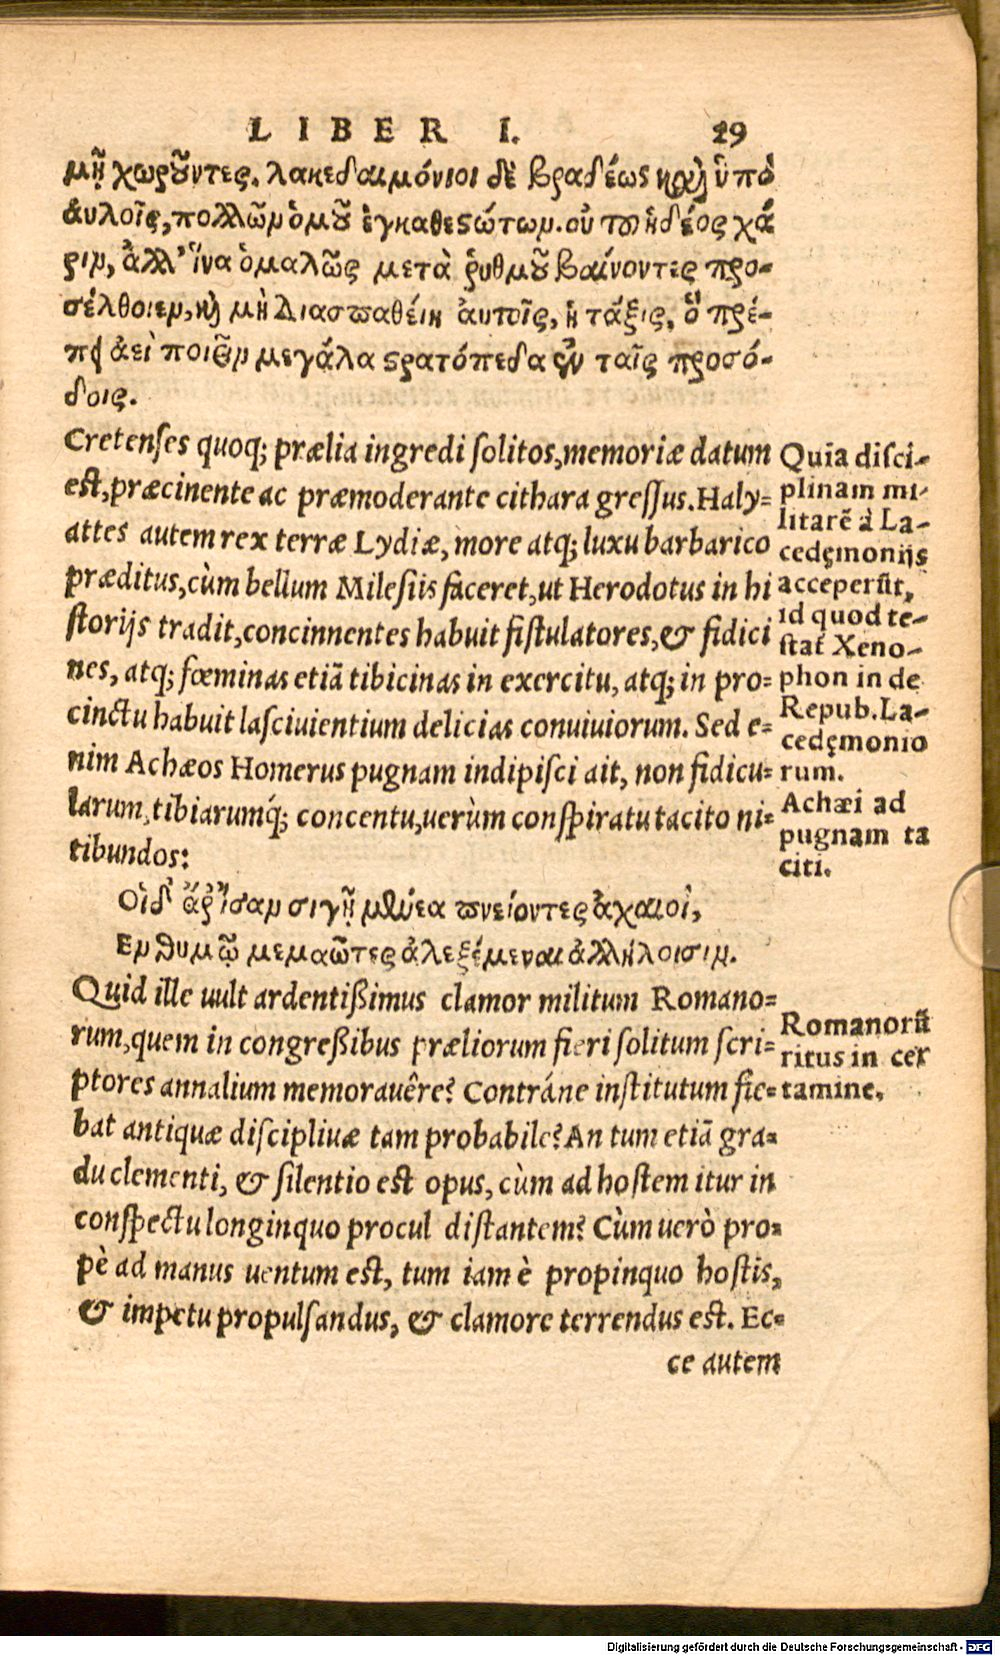 LIBER I. 29
μῇ χωροῦντες. λακεδαιμόνιοι δὲ βραδέως καὶ ὑπὸ
ἀυλοῖς, πολλῶν ὁμοῦ ἐγκαθεστώτων. οὐ τοῦ ἡδέος χά
ριν, ἀλλ᾽ ἵνα ὁμαλῶς μετὰ ῥυθμοῦ βαίνοντες προ-
σέλθοιεν, καὶ μὴ διασπαθείη ἀυτοῖς, ἡ τάξις, ὃ πρέ-
πει ἀεὶ ποιεῖν μεγάλα στρατόπεδα ἐν ταῖς προσό-
δοις.
Cretenses quoq; prælia ingredi ſolitos, memoriæ datum
eſt, præcinente ac præmoderante cithara greſſus. Haly=
attes autem rex terræ Lydiæ, more atq; luxu barbarico
præditus, cùm bellum Mileſiis faceret, ut Herodotus in hi
ſtorijs tradit, concinnentes habuit fiſtulatores, & fidici
nes, atq; fœminas etiã tibicinas in exercitu, atq; in pro=
cinctu habuit laſciuientium delicias conuiuiorum. Sed e=
nim Achæos Homerus pugnam indipiſci ait, non fidicu=
larum, tibiarumq́; concentu, uerùm conſpiratu tacito ni=
tibundos:
Οἱ δ᾽ ἄρ᾽ ἴσαν σιγῇ μένεα πνείοντες ἀχαιοὶ,
Εν θυμῷ μεμαῶτες ἀλεξέμεναι ἀλλήλοισιν.
Quid ille uult ardentißimus clamor militum Romano=
rum, quem in congreßibus præliorum fieri ſolitum ſcri=
ptores annalium memorauêre? Contráne inſtitutum fie=
bat antiquæ diſcipliuæ tam probabile? An tum etiã gra=
du clementi, & ſilentio eſt opus, cùm ad hoſtem itur in
conſpectu longinquo procul diſtantem? Cùm uerò pro=
pè ad manus uentum eſt, tum iam è propinquo hoſtis,
& impetu propulſandus, & clamore terrendus eſt. Ec=
ce autem
Quia diſci-
plinam mi-
litarẽ à La-
cedęmonijs
acceperũt,
id quod te-
ſtat Xeno-
phon in de
Repub. La-
cedęmonio
rum.
Achæi ad
pugnam ta
citi.
Romanorũ
ritus in cer
tamine.
Digitalisierung gefördert durch die Deutsche Forschungsgemeinschaft - DFG